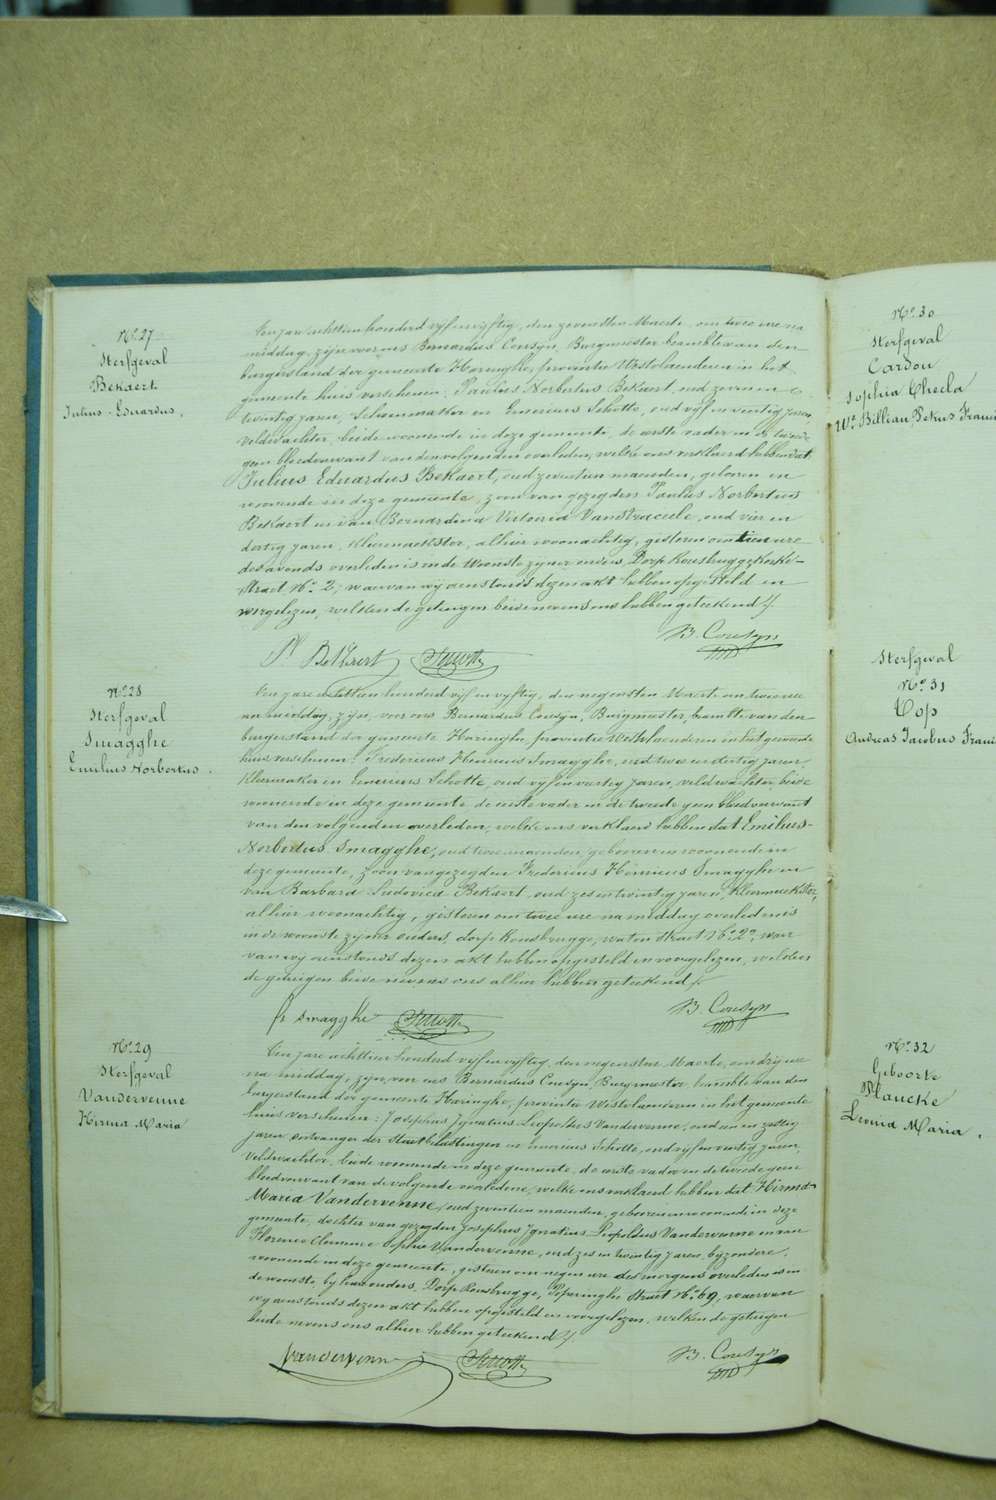 No. 27
Sterfgeval
Bekaert
Julius Eduardus.
Een jare achttien honderd vijf en vijftig, den zevensten Maerte, om twee ure na
middag, zijn voor ons Bernardus Cousyn, Burgmeester beambte van den
burgerstand der gemeente Haringhe, provincie Westvlaenderen in het
gemeente huis verschenen: Paulus Norbertus Bekaert, oud zeven en
twintig jaren, Schoenmaker en Emerius Schotte, oud vijf en veertig jaren,
veldwachter, beide woonende in deze gemeente, de eerste vader en de tweede
geen bloedverwant van den volgenden overleden, welke ons verklaerd hebben dat
Julius Eduardus Bekaert, oud zeventien maenden, geboren en
woonende in deze gemeente, zoon van gezegden Paulus Norbertus
Bekaert en van Bernardina Victoria Vanstraceele, oud vier en
dertig jaren, kleermaekster, alhier woonachtig, gisteren om tien ure
des avonds overleden is in de woonste zyner ouders, Dorp Rousbrugge Kerke
Straet No. 2; waervan wij aenstonds dezen akt hebben opgesteld en
voorgelezen, welken de getuigen beide nevens ons hebben geteekend ./.
B. Cousyn
P Bekaert Schotte
No. 28
Sterfgeval
Smagghe
Emilius Norbertus.
Een jare achttien honderd vijf en vyftig, den negensten Maerte om twee ure
na middag, zijn voor ons Bernardus Cousyn, Burgmeester, beambte van den
burgerstand der gemeente Haringhe, provincie Westvlaenderen in het gemeente
huis verschenen: Fredericus Henricus Smagghe, oud twee en dertig jaren,
Kleermaker en Emerius Schotte, oud vijf en veertig jaren, veldwachter, beide
woonende in deze gemeente, de eerste vader en de tweede geen bloedverwant
van den volgenden overleden, welke ons verklaerd hebben dat Emilius
Norbertus Smagghe, oud twee maenden, geboren en woonende in
deze gemeente, zoon van gezegden Fredericus Henricus Smagghe en
van Barbara Ludovica Bekaert, oud zes en twintig jaren, Kleermaekster,
alhier woonachtig, gisteren om twee ure na middag overleden is
in de woonste zijner ouders, dorp Rousbrugge, water straet No. 2, waer
van wy aenstonds dezen akt hebben opgesteld en voorgelezen, welken
de getuigen beide nevens ons alhier hebben geteekend ./.
B. Cousyn
fr Smagghe Schotte
No. 29
Sterfgeval
Vandervenne
Hirma Maria
Een jare achttien honderd vijf en vyftig, den negensten Maerte, om drij ure
na middag, zijn voor ons Bernardus Cousyn, Burgmeester, beambte van den
burgerstand der gemeente Haringhe, provincie Westvlaenderen in het gemeente
huis verschenen: Josephus Ignatius Leopoldus Vandervenne, oud een en zestig
jaren, ontvanger der Staetbelastingen en Emerius Schotte, oud vijf en veertig jaren,
veldwachter, beide woonende in deze gemeente, de eerste vader en de tweede geen
bloedverwant van de volgende overledene, welke ons verklaerd hebben dat Hirma
Maria Vandervenne, oud zeventien maenden, geboren en woonende in deze
gemeente, dochter van gezegden Josephus Ignatius Leopoldus Vandervenne en van
Florence Clemence Sophie Vandervenne, oud zes en twintig jaren, byzondere,
woonende in deze gemeente, gisteren om negen ure des morgens overleden is in
de woonste, bij haer ouders, Dorp Rousbrugge, Poperinghe Straet No. 69, waervan
wy aenstonds dezen akt hebben opgesteld en voorgelezen, welken de getuigen
beide nevens ons alhier hebben geteekend ./.
B. Cousyn
Vandervenne Schotte
No. 30
Sterfgeval
Cardou
Sophia Thecla
We. Billiau, Petrus Franci
Sterfgeval
No. 31
Top
Andreas Jacobus Franci
No. 32
Geboorte
Plancke
Leonia Maria.